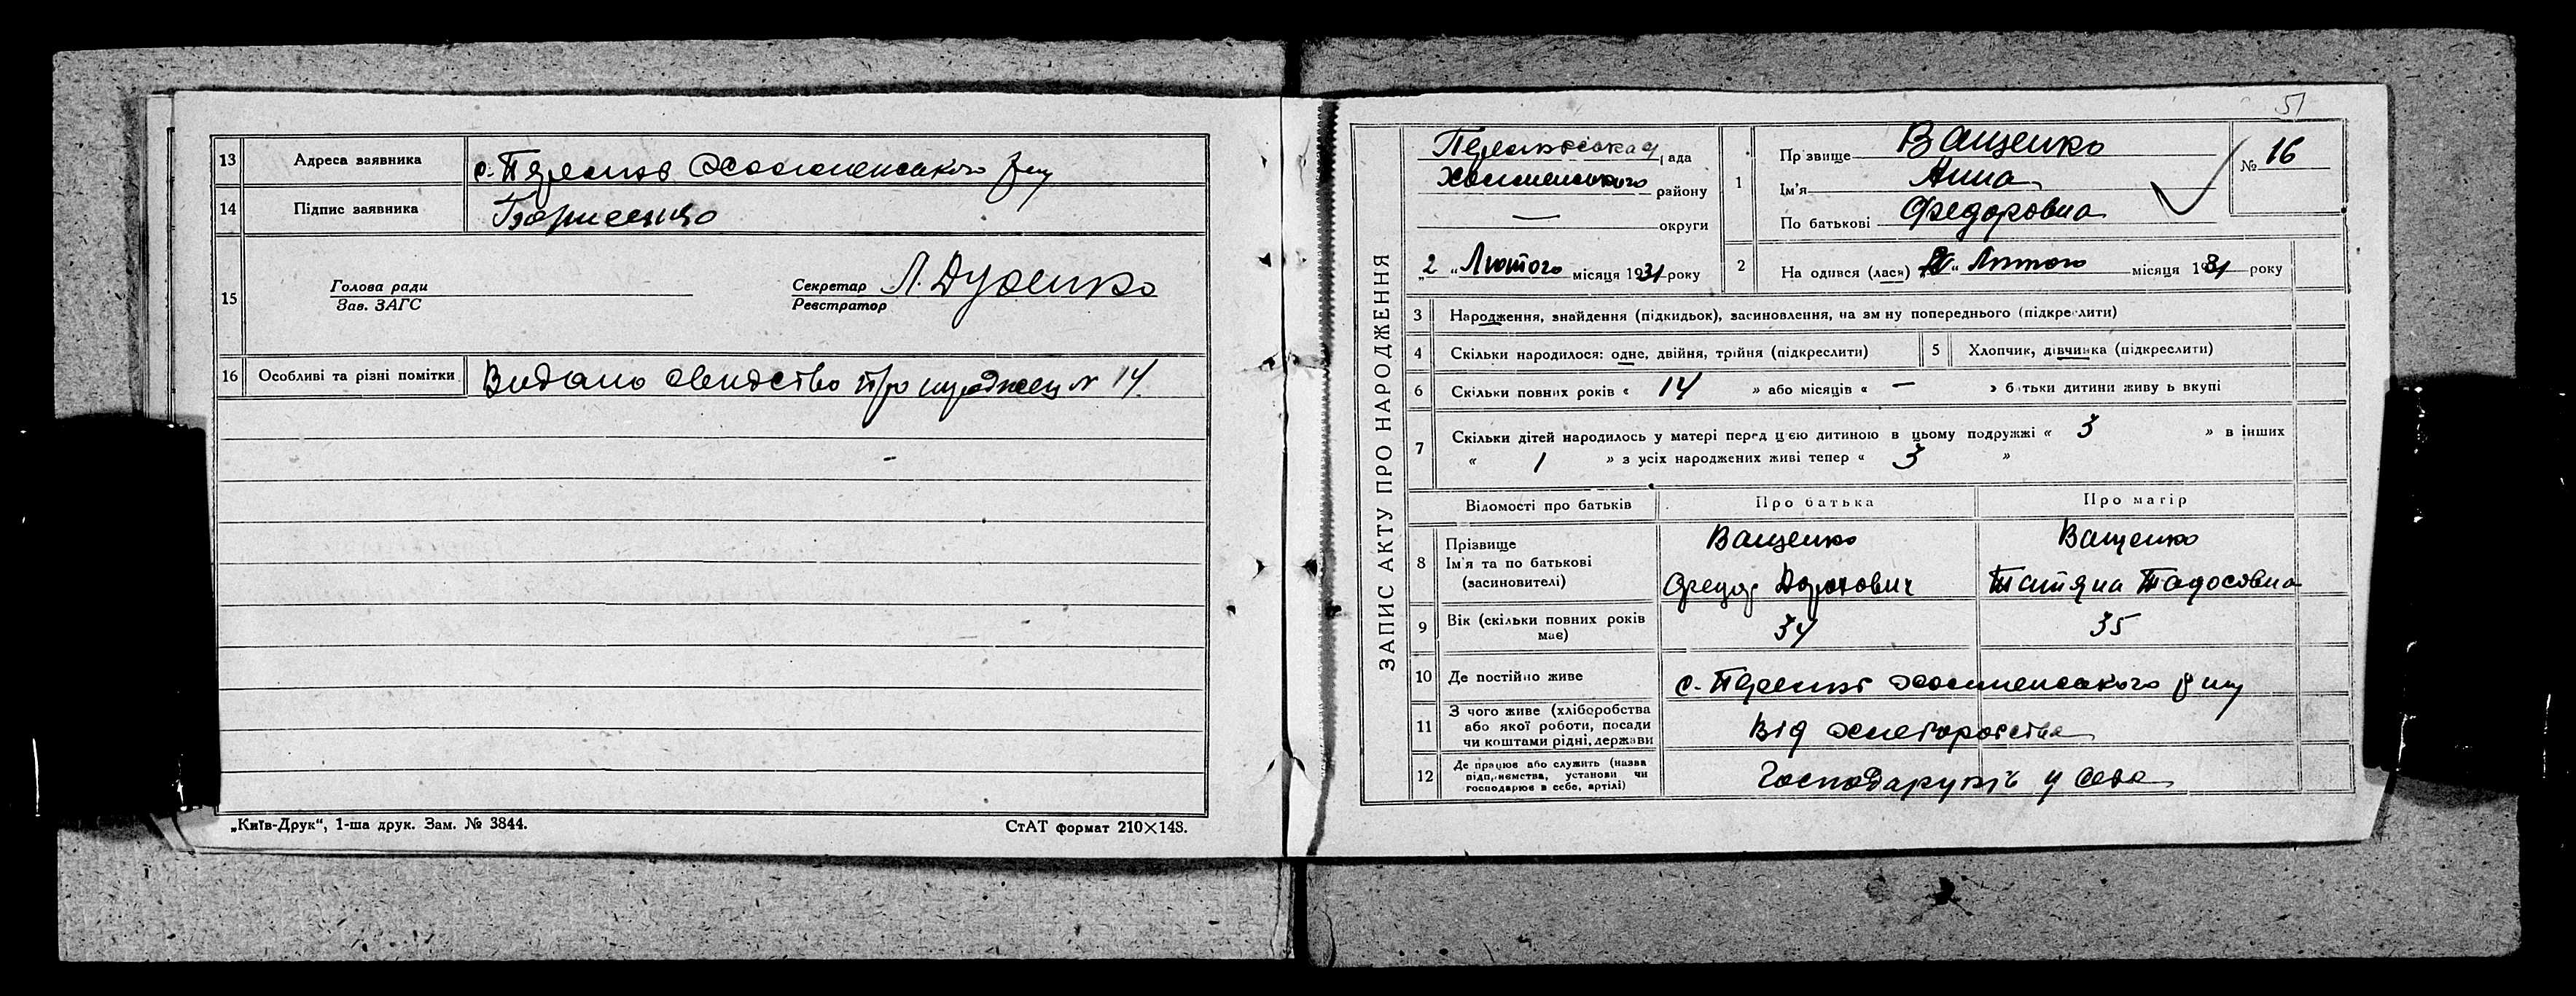 13 Адреса заявника с. Перелюб Холменського р-ну
14 Підпис заявника Борисенко
15 Голова ради Секретар Л. Дуденко
Зав. ЗАГС Реєстратор
16 Особливі та різні помітки Видано свидство про народжен № 14
„Київ-Друк“, 1-ша друк. Зам. № 3844. СтАТ формат 210×148.
51
ЗАПИС АКТУ ПРО НАРОДЖЕННЯ
рада
Холменського району
— округи
„2 „ Лютого місяця 1931 року
1 Прізвище Ващенко
Ім'я Анна
По батькові Федоровна
№ 16
2 На одився (лася) „ Лютого місяця 1931 року
3 Народження, знайдення (підкидьок), засиновлення, на зм ну попереднього (підкреслити)
4 Скільки народилося: одне, двійня, трійня (підкреслити) 5 Хлопчик, дівчинка (підкреслити)
6 Скільки повних років « 14 » або місяців « — » батьки дитини живуть вкупі
7 Скільки дітей народилось у матері перед цією дитиною в цьому подружжі « 3 » в інших
« 1 » з усіх народжених живі тепер « 3 »
Відомості про батьків Про батька Про матір
8 Прізвище Ващенко Ващенко
Ім'я та по батькові
(засиновителі) Федор Татяна Тадосовна
9 Вік (скільки повних років має) 34 35
10 Де постійно живе с. Перелюб Холменського р-ну
11 З чого живе (хліборобства
або якої роботи, посади Від
чи коштами рідні, держави
12 Де працює або служить (назва
підприємства, установи чи Господарують у себе
господарює в себе, артілі)